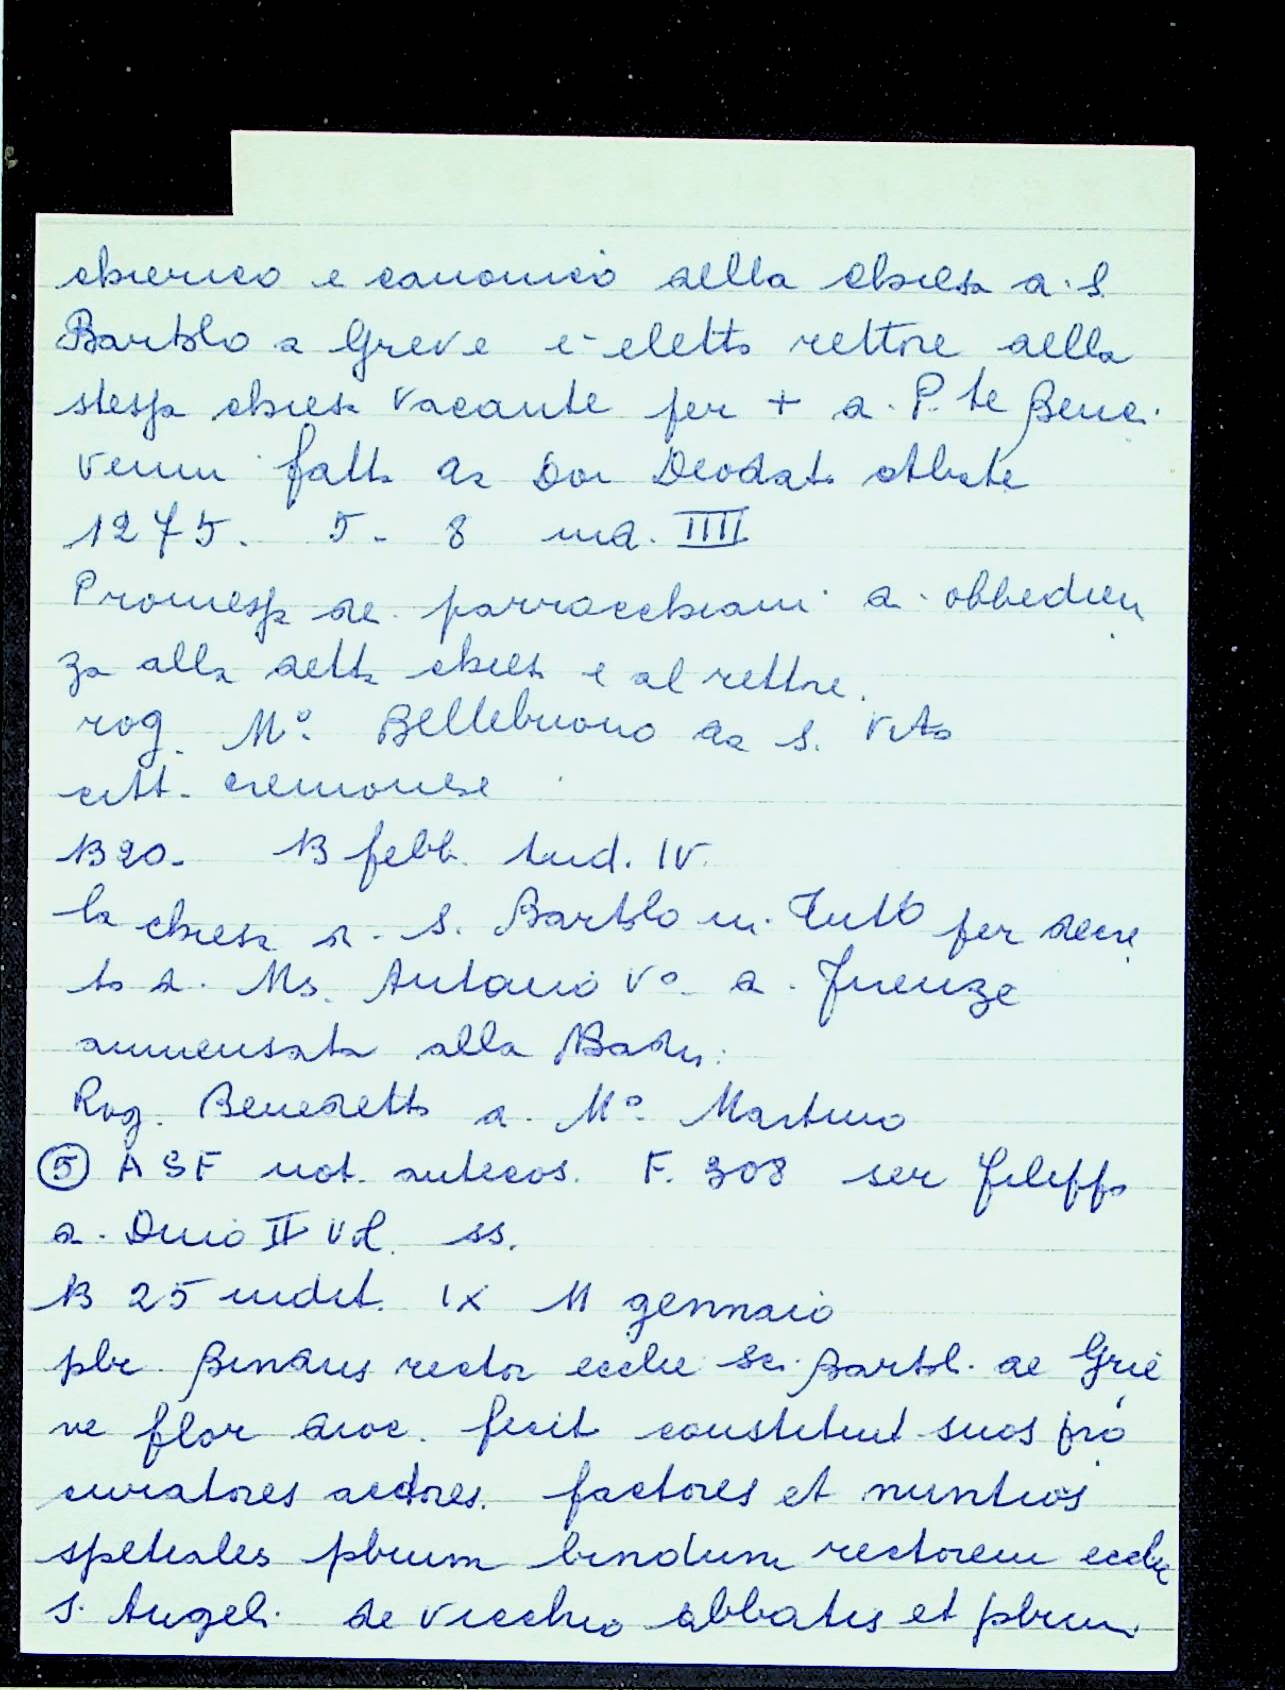 chierico e canonico della chiesa di S.
Bartolo a Greve è eletto rettore della
stessa chiesa vacante per + di P.te Benci
venni fatta da Don Deodato abbate
1275. 5. 8 ind. IIII
Promessa dei parrocchiani di obbedien
za alla detta chiesa e al rettore.
rog. M° Bellebuono da S. Vito
citt. cremonese
1320. 13 febb. Ind. IV.
la chiesa di S. Bartolo in Tuto per decre
to di Ms. Antonio V° di Firenze
ammensata alla Badia.
Rog. Benedetto di M° Martino
⑤ ASF not. antecos. F. 308 ser Filippo
di Dino II vol. ss.
1325 indit. IX 11 gennaio
pbr. Bindus rector ecclie Sci. Bartol. de Grie
ve flor dioc. fecit constituit suos pro
curatores actores. factores et nuntios
spetiales pbrum bindum rectorem ecclie
S. Angeli de Vicchio abbatis et pbrum